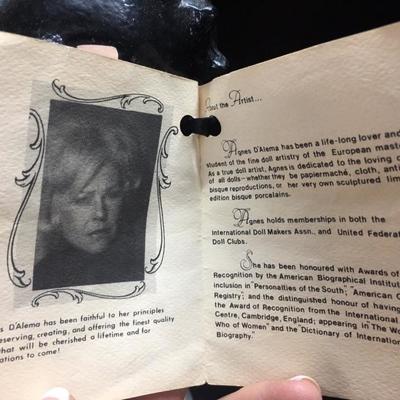 s D'Alema has been faithful to her principles
eserving, creating, and offering the finest quality
that will be cherished a lifetime and for
ations to come!
out the Artist...
Agnes D'Alema has been a life-long lover and
student of the fine doll artistry of the European mast
As a true doll artist, Agnes is dedicated to the loving c
of all dolls—whether they be papiermaché, cloth, anti
bisque reproductions, or her very own sculptured lim
edition bisque porcelains.
Agnes holds memberships in both the
International Doll Makers Assn., and United Federat
Doll Clubs.
She has been honoured with Awards of
Recognition by the American Biographical Institut
inclusion in "Personalties of the South", "American C
Registry"; and the distinguished honour of having
the Award of Recognition from the International
Centre, Cambridge, England; appearing in "The Wo
Who of Women" and the "Dictionary of Internation
Biography."